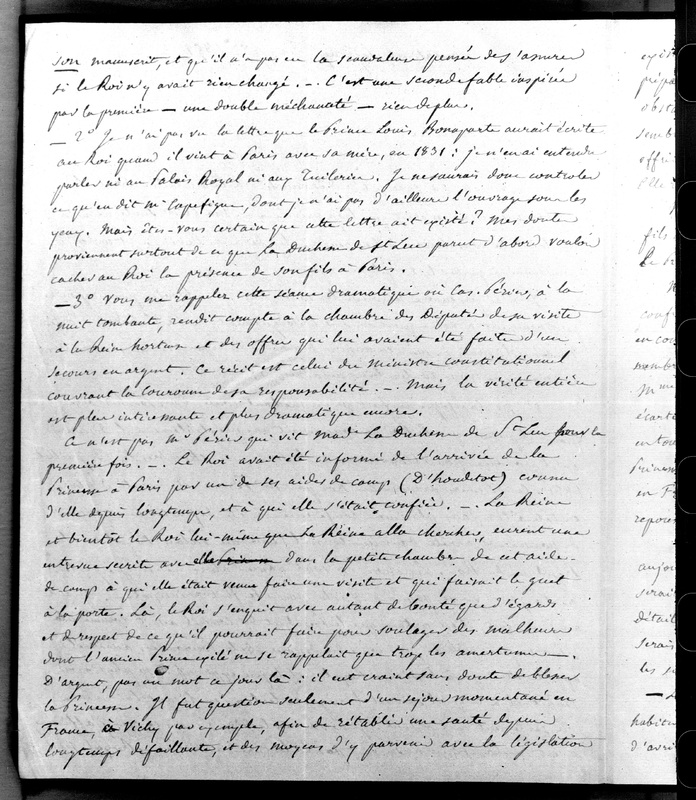 son manuscrit, et qu'il n'a pas eu la scandaleuse pensée de s'assurer
si le Roi n'y avait rien changé. — C'est une seconde fable inspirée
par la première — une double méchanceté — rien de plus.
— 2° Je n'ai pas vu la lettre que le Prince Louis Bonaparte aurait écrite
au Roi quand il vint à Paris avec sa mère, en 1831 : je n'en ai entendu
parler ni au Palais Royal ni aux Tuileries. Je ne saurais donc controler
ce qu'en dit Mr Capefigue, dont je n'ai pas d'ailleurs l'ouvrage sous les
yeux. Mais êtes-vous certain que cette lettre ait existé ? Mes doutes
proviennent surtout de ce que La Duchesse de St Leu parut d'abord vouloir
cacher au Roi la présence de son fils à Paris.
— 3° Vous me rappelez cette séance dramatique où Cas. Périer, à la
nuit tombante, rendit compte à la chambre des Députés de sa visite
à la Reine hortense et des offres qui lui avaient été faites d'un
secours en argent. Ce récit est celui du Ministre constitutionnel
couvrant la Couronne de sa responsabilité. — Mais la vérité entière
est plus intéressante et plus dramatique encore.
Ce n'est pas Mr Périer qui vit Made La Duchesse de St Leu pour la
première fois. — Le Roi avait été informé de l'arrivée de la
Princesse à Paris par un de ses aides de camp (D'houdetot) connu
d'elle depuis longtemps, et à qui elle s'était confiée. — La Reine
et bientôt le Roi lui-même que La Reine alla chercher, eurent une
entrevue secrète avec elle dans la petite chambre de cet aide-
de camp à qui elle était venue faire une visite et qui faisait le guet
à la porte. Là, le Roi s'enquit avec autant de bonté que d'égards
et de respect de ce qu'il pourrait faire pour soulager des malheurs
dont l'ancien Prince exilé ne se rappelait que trop les amertumes —.
D'argent, pas un mot ce jour là : il eut craint sans doute de blesser
la Princesse. Il fut question seulement d'un séjour momentané en
France, à Vichy par exemple, afin de rétablir une santé depuis
longtemps défaillante, et des moyens d'y parvenir avec la législation